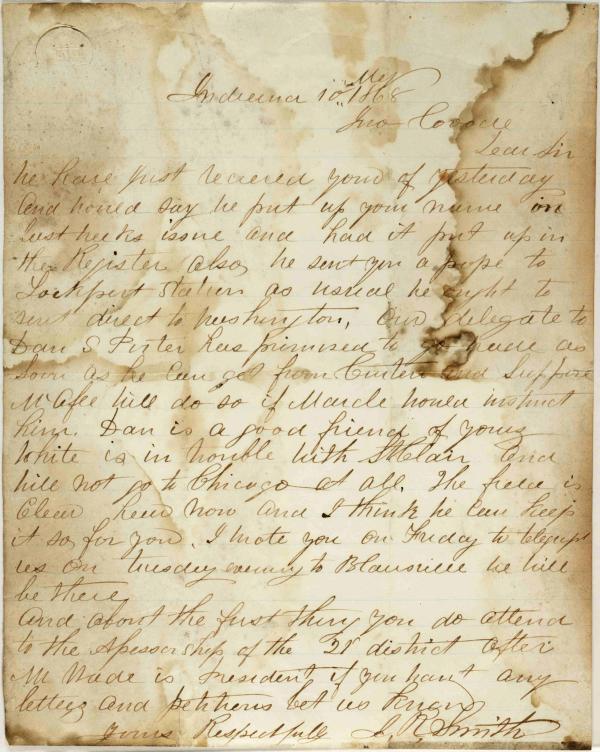 Indiana 10th May 1868
Jno Covode
Dear Sir
We have just recieved your of yesterday
and would say we put up your name in
last weeks issue and had it put up in
the Register also, we sent you a pape to
Lockport Station as usual we ought to
sent direct to Washington, Our delegate to
Dan S Porter has promised to Wade as
Soon as he can get from Curten and Suppose
McAfee will do so if Marcle would instruct
him. Dan is a good friend of yours
White is in trouble with StClair and
will not go to Chicago at all. The field is
Clear hear now and I think we can keep
it so for you. I wrote you on Friday to telegraph
us on Tuesday evening to Blairsville we will
be there
And about the first thing you do attend
to the Assessorship of the 21st district after
Mr Wade is President if you want any
letters and petitions let us know
Yours Respectfully J. R. Smith